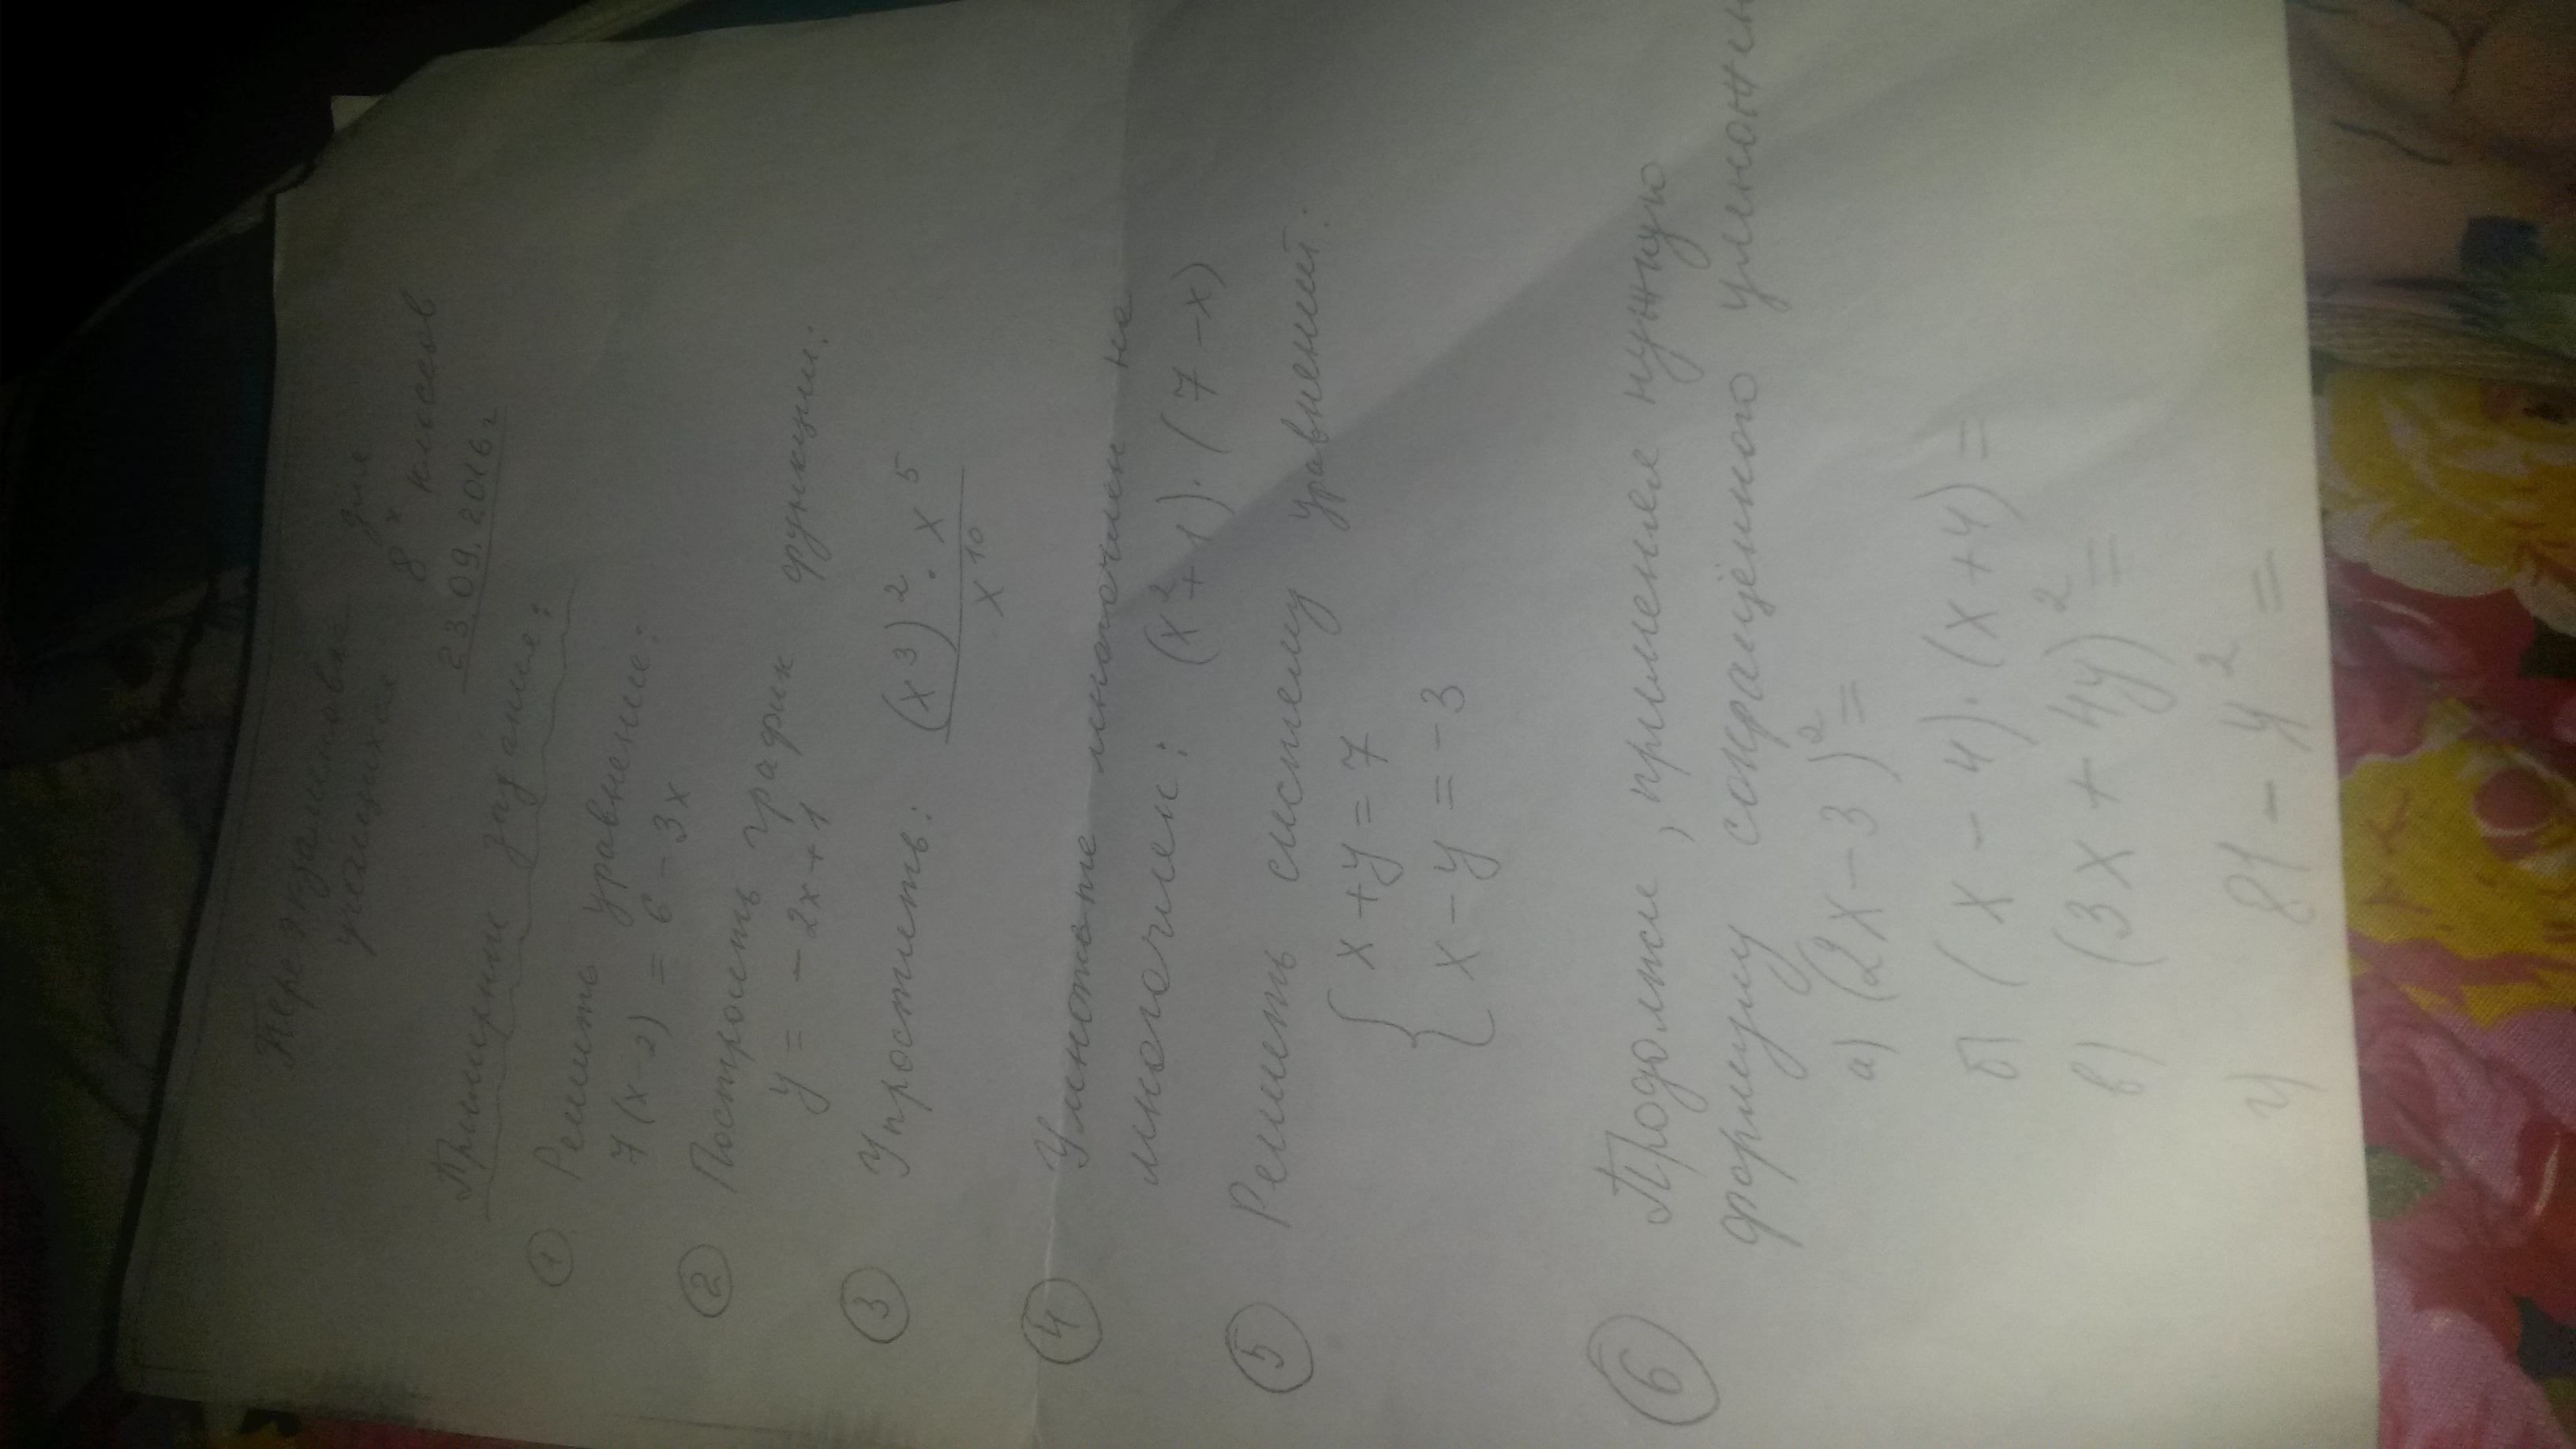 Переэкзаменовка для
учащихся 8х классов
23.09.2016г
Примерные задания:
① Решить уравнение:
7(x-2) = 6-3x
② Построить график функции:
y = -2x+1
③ Упростить: (x³)²·x⁵
x¹⁰
④ Умножьте многочлен на
многочлен: (x²+1)·(7-x)
⑤ Решить систему уравнений:
{ x+y=7
x-y=-3
⑥ Продолжи, применяя нужную
формулу сокращённого умножен
а) (2x-3)²=
б) (x-4)·(x+4)=
в) (3x+4y)²=
г) 81-y²=